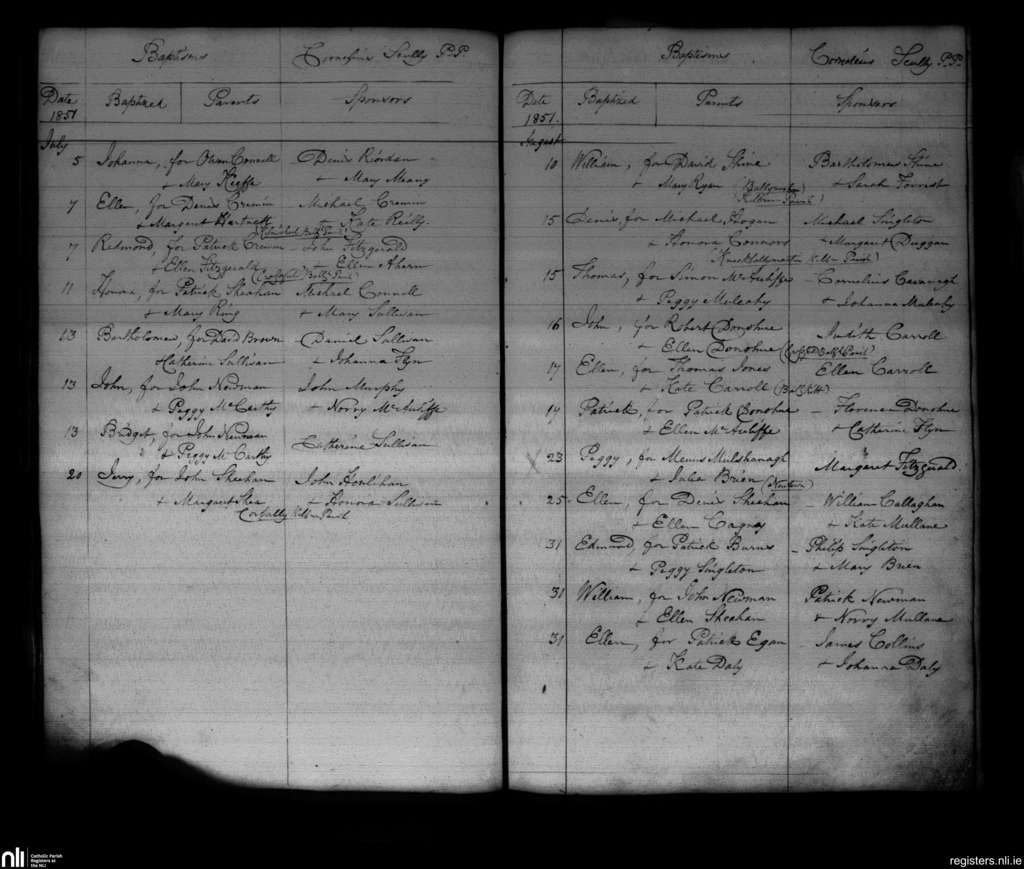 Baptisms Cornelius Scully P.P.
Date Baptized Parents Sponsors
1851
July
5 Johanna, for Owen Connell Denis Riordan
+ Mary Keeffe + Mary Meany
7 Ellen, for Denis Cremin Michael Cremin
+ Margaret Hartnett + Kate Reilly
7 Redmond, for Patrick Cremin - John Fitzgerald
+ Ellen Fitzgerald + Ellen Ahern
11 Honora, for Patrick Sheahan Michael Connell
+ Mary Ring + Mary Sullivan
13 Bartholomew, for David Brown Daniel Sullivan
Catherine Sullivan + Johanna Flyn
13 John, for John Newman John Murphy
+ Peggy McCarthy + Norry McAuliffe
13 Bridget, for John Newman Catherine Sullivan
+ Peggy McCarthy
20 Jerry, for John Sheehan John Houlihan
+ Margaret Shea + Honora Sullivan
Baptisms Cornelius Scully P.P.
Date Baptized Parents Sponsors
1851.
August
10 William, for David Shine Bartholomew Shine
+ Mary Ryan + Sarah Forrest
15 Denis, for Michael Hogan Michael Singleton
+ Honora Connors + Margaret Duggan
15 Thomas, for Simon McAuliffe - Cornelius Cavanagh
+ Peggy Mulcahy + Johanna Mulcahy
16 John, for Robert Donohue Judith Carroll
+ Ellen Donohue
17 Ellen, for Thomas Jones Ellen Carroll
+ Kate Carroll
19 Patrick, for Patrick Donohue - Florence Donohue
+ Ellen McAuliffe + Catherine Flyn
X 23 Peggy, for Mulshanagh Margaret Fitzgerald
+ Julia Brien
25 - Ellen, for Denis Sheehan - William Callaghan
+ Ellen Cagney + Kate Mullane
31 Edmond, for Patrick Burns - Philip Singleton
+ Peggy Singleton + Mary Brien
31 William, for John Newman Patrick Newman
+ Ellen Sheahan + Norry Mullane
31 Ellen, for Patrick Egan - James Collins
+ Kate Daly + Johanna Daly
nli Catholic Parish
Registers at
the NLI
registers.nli.ie